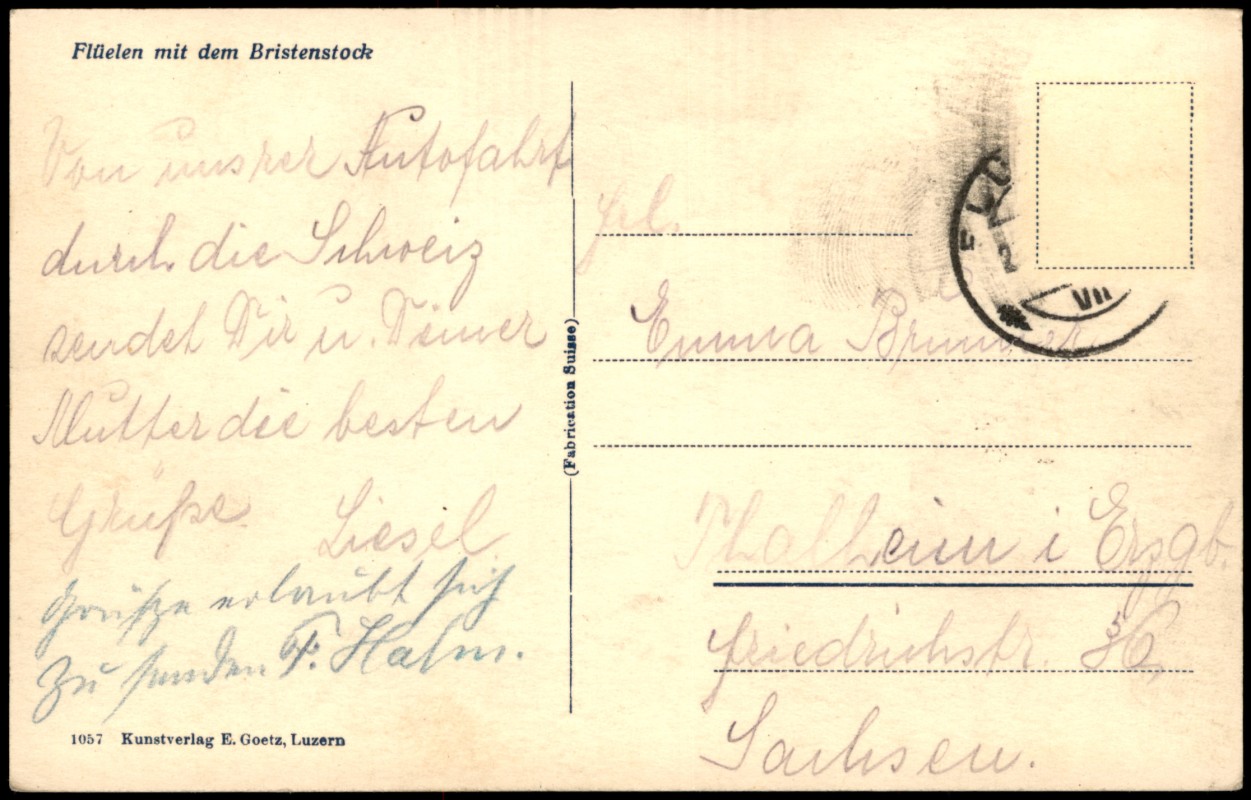 Flüelen mit dem Bristenstock
Von unsrer Autofahrt
durch die Schweiz
sendet Dir u. Deiner
Mutter die besten
Grüße Liesel
Grüße erlaubt sich
zu senden F. Halm.
1057 Kunstverlag E. Goetz, Luzern
(Fabrication Suisse)
VII
Frl.
Emma Brunner
Thalheim i Erzgb.
Friedrichstr.
Sachsen.